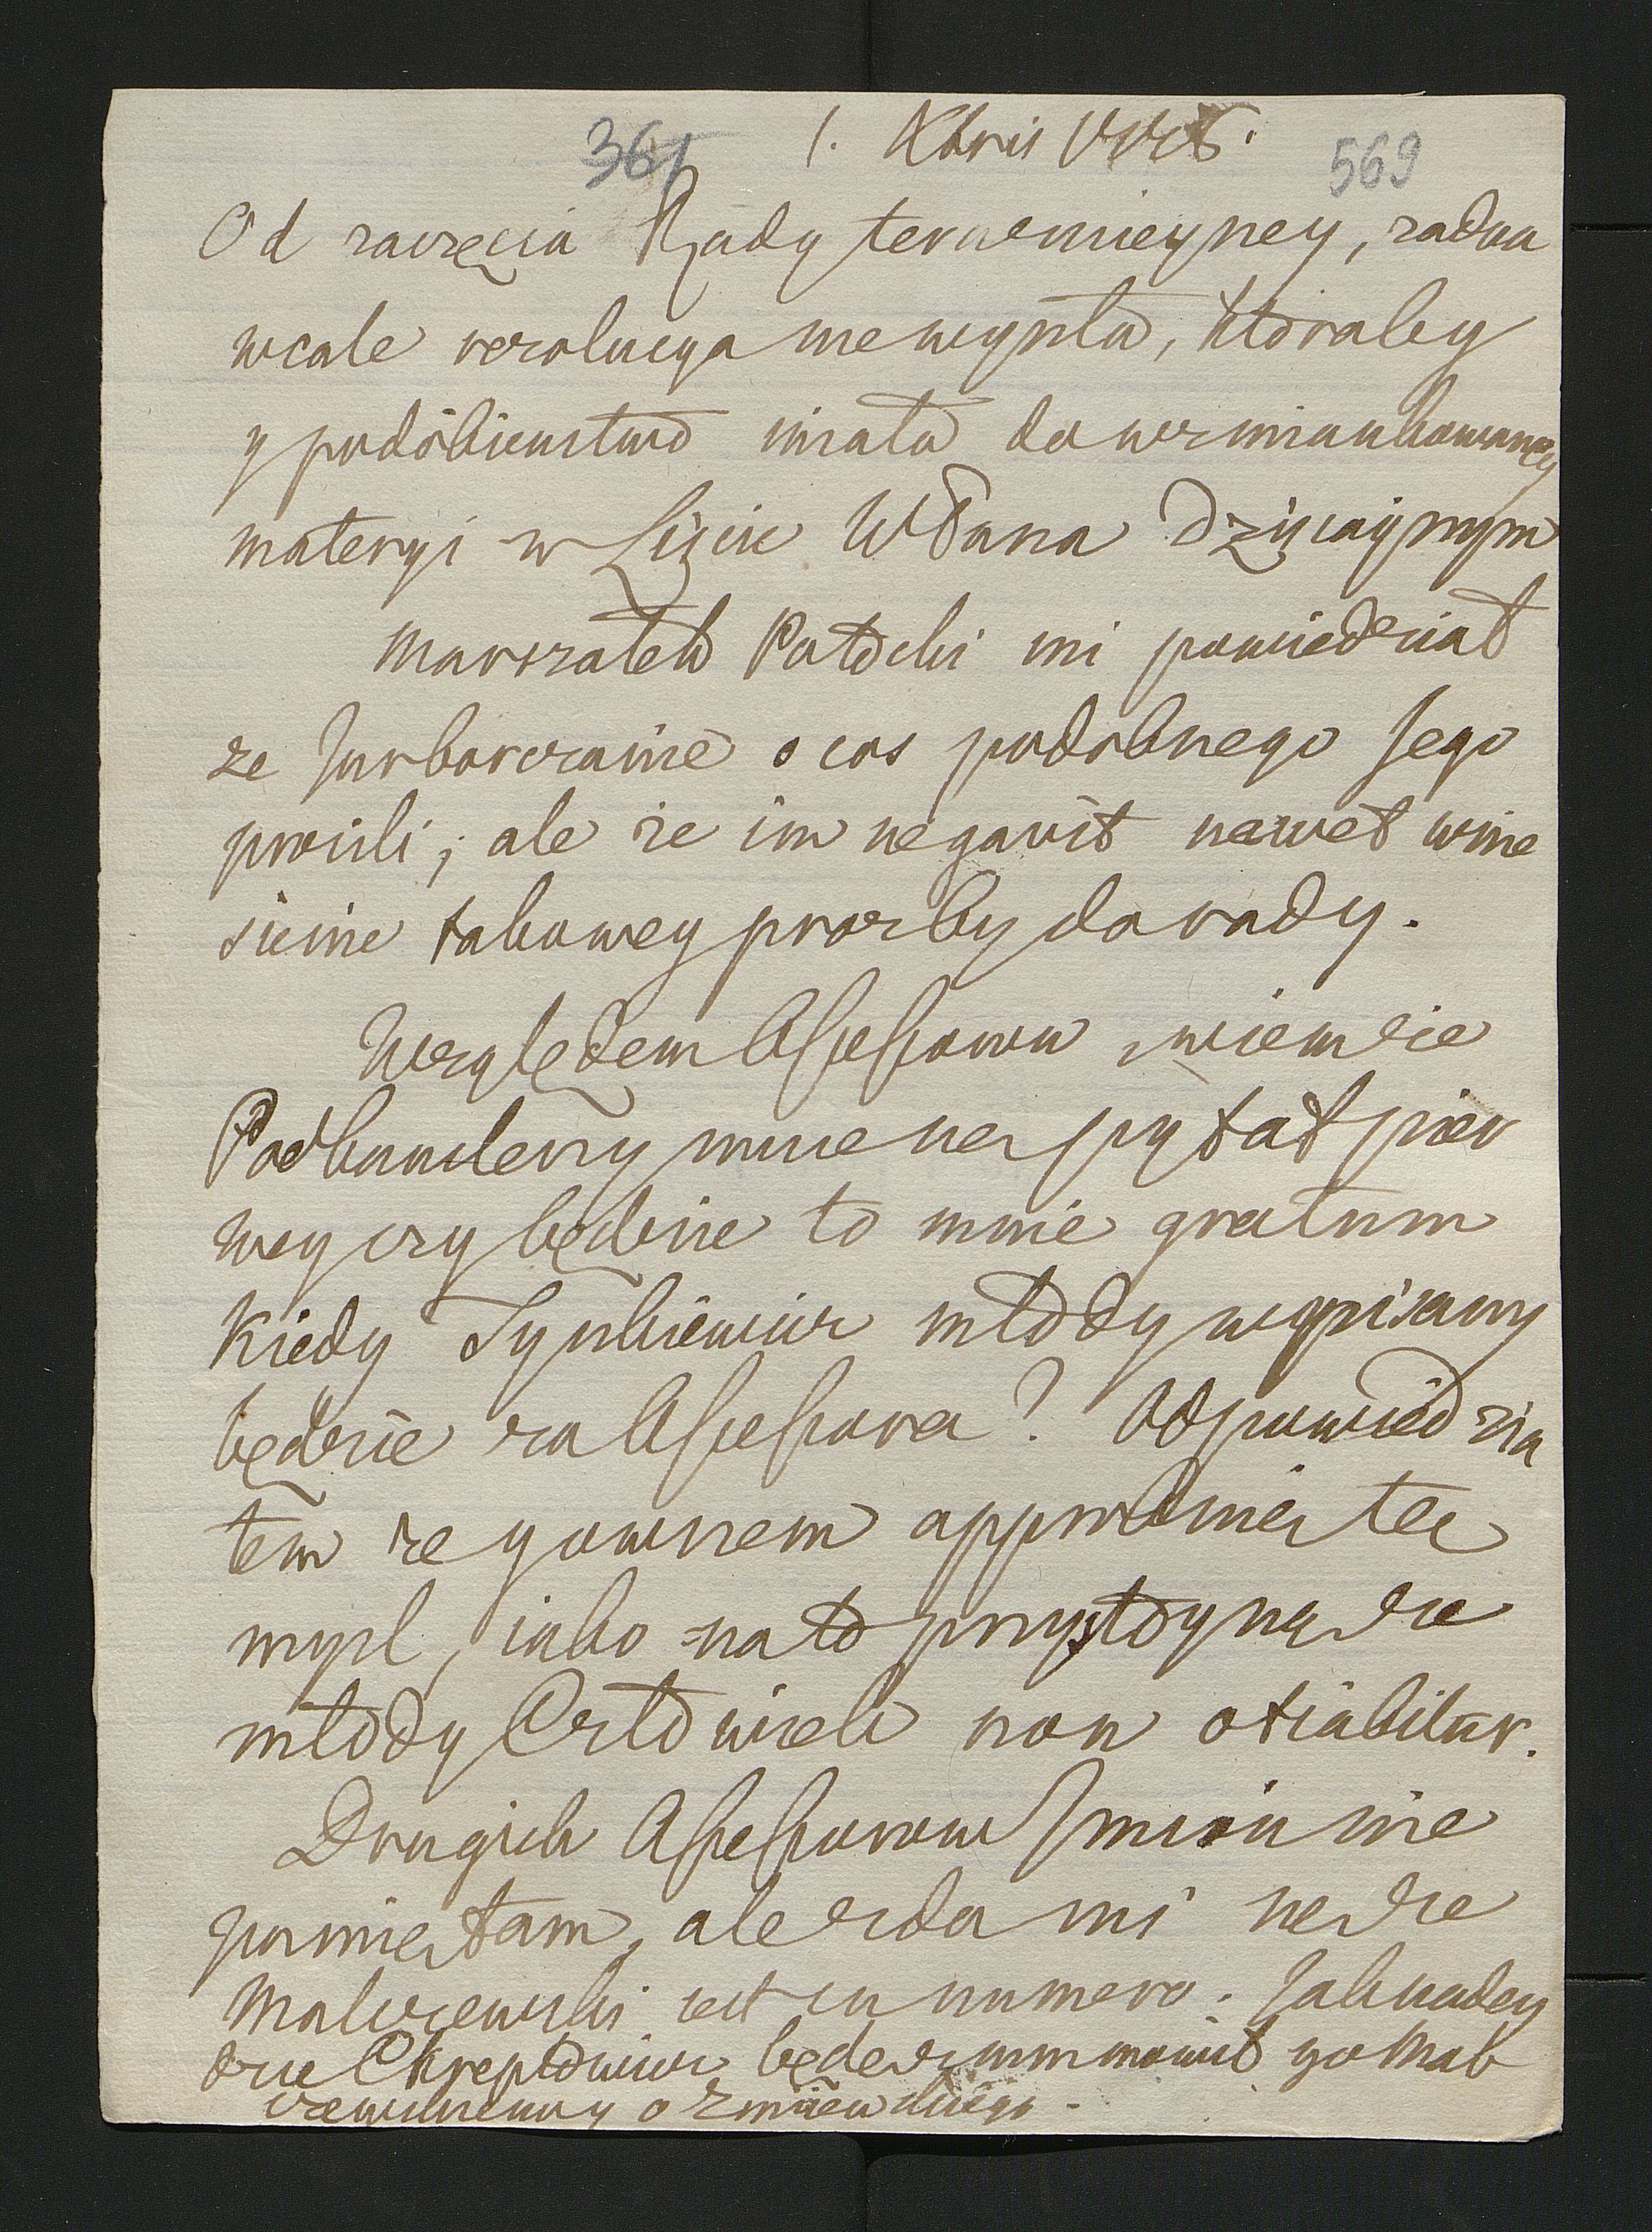 361 1. Xbris 569
Od zaczęcia Rady teraznieyszey, zadna
wcale rezolucya nie wyszła, ktoraby
y podobienstwo miała do wzmiankowaney
materyi w Liście WPana Dzisiayszym
Marszałek Potocki mi powiedział
ze Jurborczanie o cos podobnego Jego
prosili; ale że im negavit nawet wnie
sienie takowey prozby do rady.
Względem Assessorow, wiem że
Podkanclerzy mnie się pytał pier
wey czy będzie to mnie gratum
Kiedy Tyszkiewicz młody wpisany
będzie za Assessora? Odpowiedzia
łem że y owszem approbuię tę
mysl, iako na to przystoyną że
młody Człowiek non otiabitur.
Drugich Assessorow Imion nie
pamiętam, ale zda mi się że
Malczewski est in numero. Jak nadey
dzie Chreptowicz będę z nim mowił go Mał
czewskiemu o